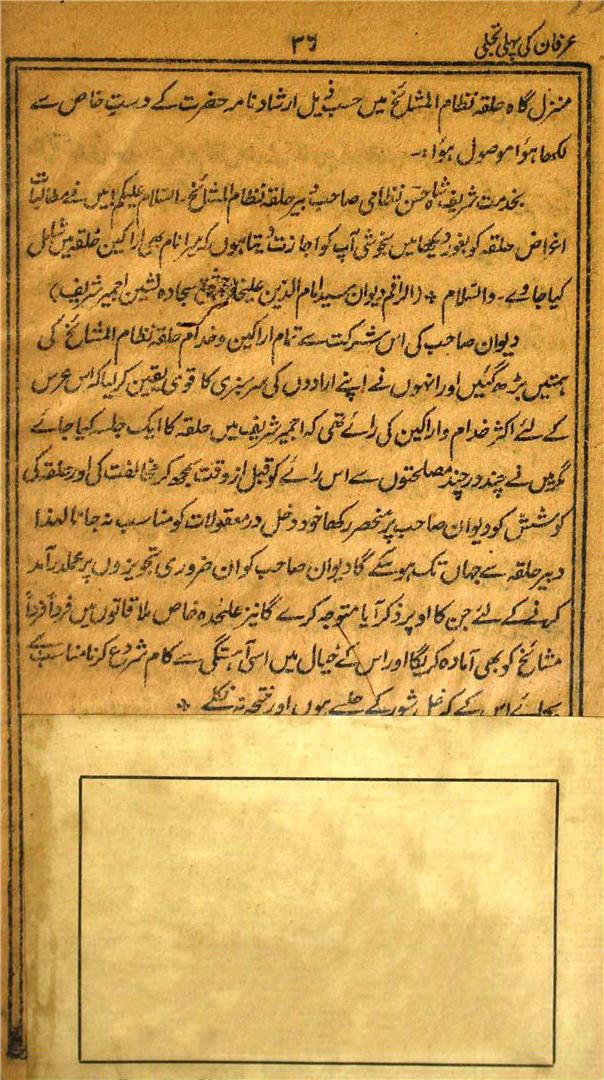 عرفان کی پہلی تجلی
۳۶
منزل گاہ حلقہ نظام المشائخ میں حسب ذیل ارشاد نامہ حضرت کے دستِ خاص سے
لکھا ہوا موصول ہوا:۔
بخدمت شریف شاہ حسن نظامی صاحب دبیر حلقہ نظام المشائخ۔ السّلام علیکم! میں نے مطالبات
اغراض حلقہ کو بغور دیکھا میں بخوشی آپ کو اجازت دیتا ہوں کہ میرا نام بھی اراکین حلقہ میں شامل
کیا جاوے۔ والسّلام * (الراقم دیوان سید امام الدین علیخاں سجادہ نشین اجمیر شریف)
دیوان صاحب کی اس شرکت سے تمام اراکین و خدام حلقہ نظام المشائخ کی
ہمتیں بڑھ گئیں اور انہوں نے اپنے ارادوں کی سرسبزی کا قوی یقین کر لیا کہ اس عرس
کے لئے اکثر خدام و اراکین کی رائے تھی کہ اجمیر شریف میں حلقہ کا ایک جلسہ کیا جائے
مگر میں نے چند در چند مصلحتوں سے اس رائے کو قبل از وقت سمجھ کر مخالفت کی اور حلقہ کی
کوشش کو دیوان صاحب پر منحصر رکھا خود دخل در معقولات کو مناسب نہ جانا لہذا
دبیر حلقہ سے جہاں تک ہو سکے گا دیوان صاحب کو ان ضروری تجویزوں پر عملدرآمد
کرنے کے لئے جن کا اوپر ذکر آیا متوجہ کرے گا نیز علیٰحدہ خاص ملاقاتوں میں فرداً فرداً
مشائخ کو بھی آمادہ کریگا اور اس کے خیال میں اسی آہستگی سے کام شروع کرنا مناسب ہے
بجائے اس کے کہ غل شور کے جلسے ہوں اور نتیجہ نہ نکلے *